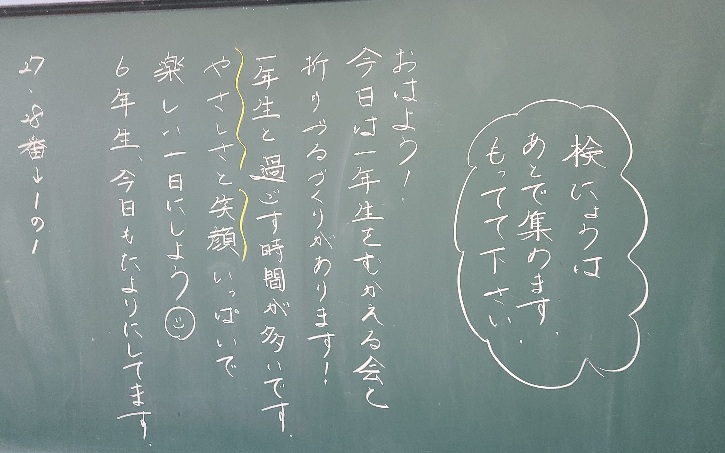 検にょうは
あとで集めます.
もってて下さい.
おはよう!
今日は一年生をむかえる会と
折りづるづくりがあります!
一年生と過ごす時間が多いです.
やさしさと笑顔いっぱいで
楽しい一日にしよう
6年生、今日もたよりにしてます.
27.28番↓1の1